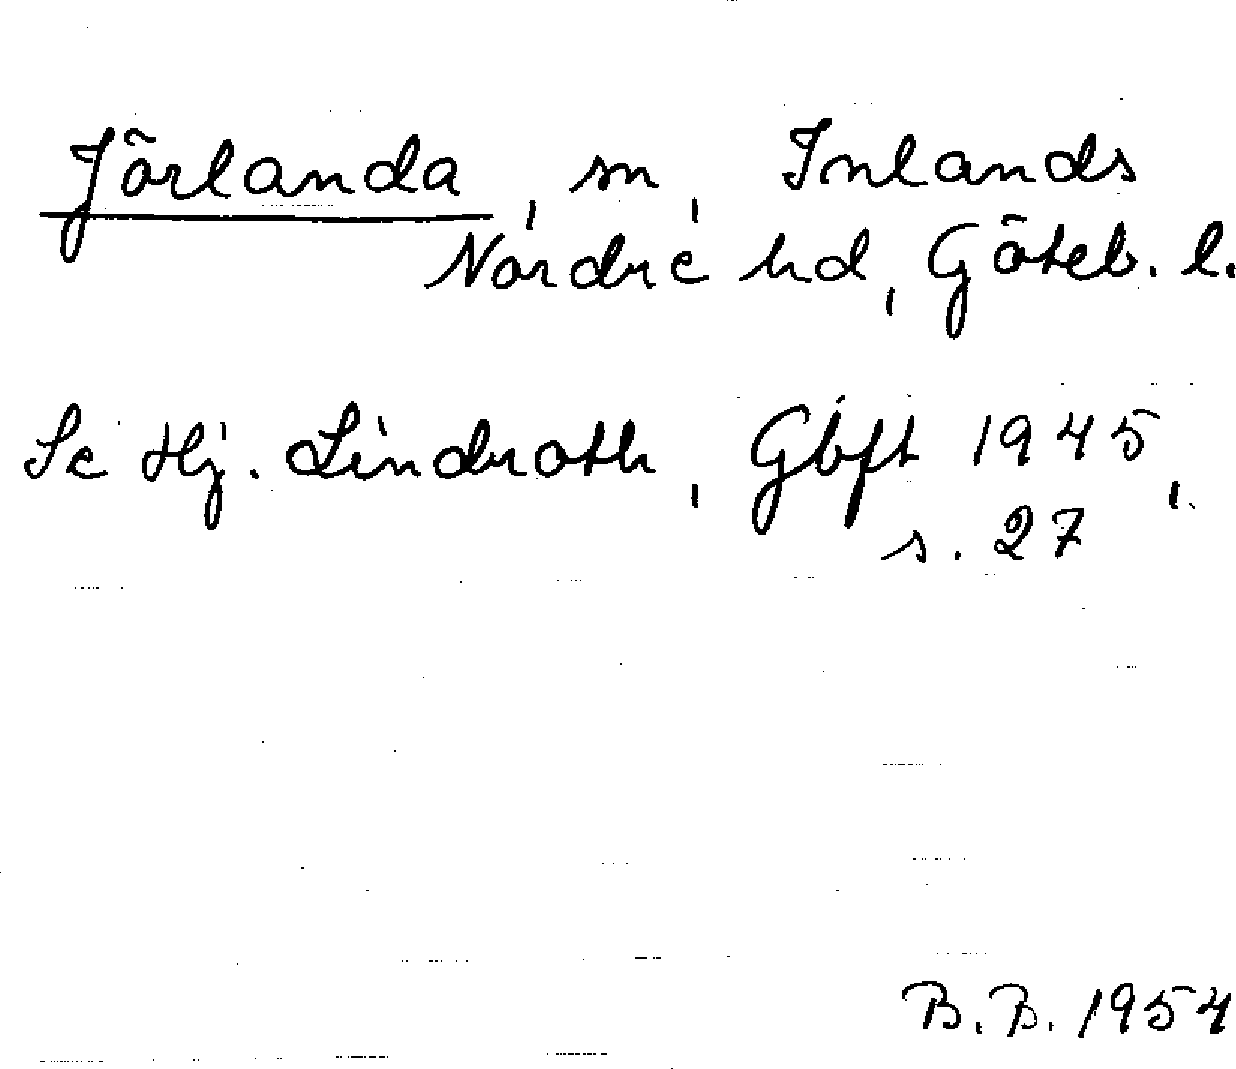 Jörlanda, sn, Inlands
Nordre hd, Göteb. l.
Se Hj. Lindroth, Gbft 1945,
s. 27
B. B. 1954